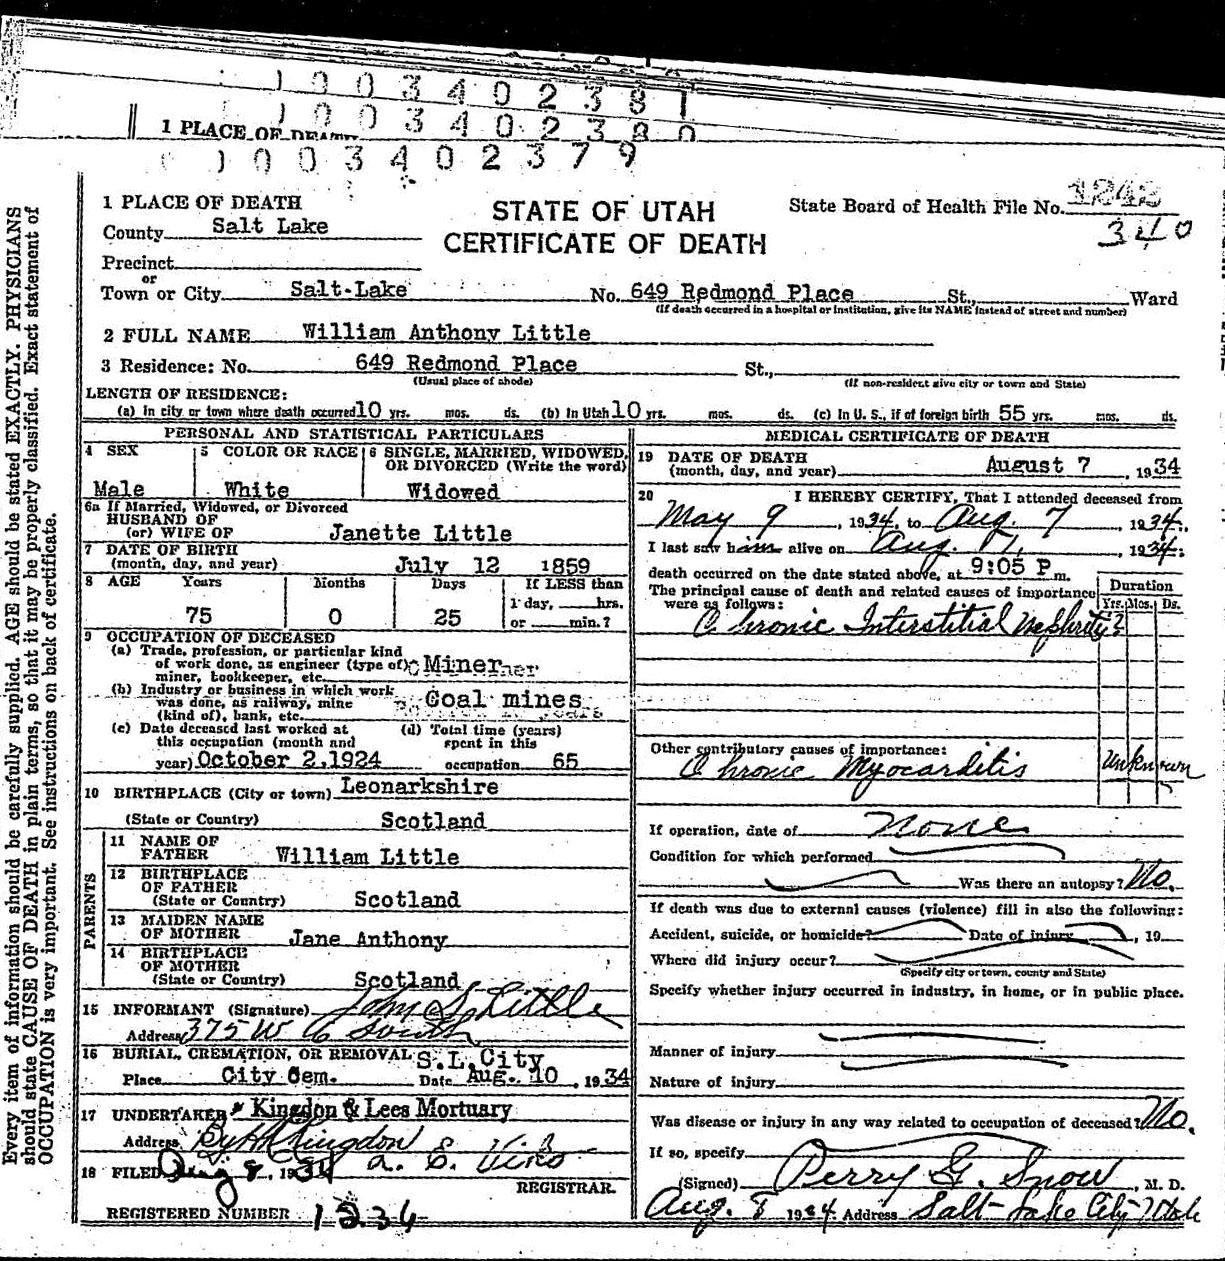 1003402381
1003402380
1 PLACE OF DEATH
1003402379
1 PLACE OF DEATH
County Salt Lake
Precinct
or
Town or City Salt-Lake
STATE OF UTAH
CERTIFICATE OF DEATH
State Board of Health File No. 1242
340
No. 649 Redmond Place St., Ward
(If death occurred in a hospital or institution, give its NAME instead of street and number)
2 FULL NAME William Anthony Little
3 Residence: No. 649 Redmond Place St.,
(Usual place of abode) (If non-resident give city or town and State)
LENGTH OF RESIDENCE:
(a) In city or town where death occurred 10 yrs. mos. ds. (b) In Utah 10 yrs. mos. ds. (c) In U. S., if of foreign birth 55 yrs. mos. ds.
PERSONAL AND STATISTICAL PARTICULARS
4 SEX 5 COLOR OR RACE 6 SINGLE, MARRIED, WIDOWED, OR DIVORCED (Write the word)
Male White Widowed
6a If Married, Widowed, or Divorced
HUSBAND OF
(or) WIFE OF Janette Little
7 DATE OF BIRTH
(month, day, and year) July 12 1859
8 AGE Years Months Days If LESS than
75 0 25 1 day, hrs.
or min.?
9 OCCUPATION OF DECEASED
(a) Trade, profession, or particular kind
of work done, as engineer (type of) Miner
miner, bookkeeper, etc.
(b) Industry or business in which work
was done, as railway, mine Coal mines
(kind of), bank, etc.
(c) Date deceased last worked at
this occupation (month and
year) October 2, 1924
(d) Total time (years)
spent in this
occupation 65
10 BIRTHPLACE (City or town) Leonarkshire
(State or Country) Scotland
PARENTS
11 NAME OF
FATHER William Little
12 BIRTHPLACE
OF FATHER
(State or Country) Scotland
13 MAIDEN NAME
OF MOTHER Jane Anthony
14 BIRTHPLACE
OF MOTHER
(State or Country) Scotland
15 INFORMANT (Signature) John S. Little
Address 375 W 6 South
16 BURIAL, CREMATION, OR REMOVAL S.L. City
Place City Cem. Date Aug. 10, 1934
17 UNDERTAKER Kingdon & Lees Mortuary
Address By H Kingdon
18 FILED Aug 8, 1934
REGISTRAR.
REGISTERED NUMBER 1234
MEDICAL CERTIFICATE OF DEATH
19 DATE OF DEATH
(month, day, and year) August 7, 1934
20 I HEREBY CERTIFY, That I attended deceased from
May 9, 1934, to Aug. 7, 1934.
I last saw him alive on Aug. 1934;
death occurred on the date stated above, at 9:05 P m.
The principal cause of death and related causes of importance
were as follows:
Duration
Yrs. Mos. Ds.
Chronic Interstitial Nephritis ?
Other contributory causes of importance:
Chronic Myocarditis Unknown
If operation, date of None
Condition for which performed
Was there an autopsy? No.
If death was due to external causes (violence) fill in also the following:
Accident, suicide, or homicide? Date of injury , 19
Where did injury occur?
(Specify city or town, county and State)
Specify whether injury occurred in industry, in home, or in public place.
Manner of injury
Nature of injury
Was disease or injury in any way related to occupation of deceased? No.
If so, specify
(Signed) Perry G. Snow, M. D.
Aug. 8 1934 Address Salt Lake City Utah
Every item of information should be carefully supplied. AGE should be stated EXACTLY. PHYSICIANS
should state CAUSE OF DEATH in plain terms, so that it may be properly classified. Exact statement of
OCCUPATION is very important. See instructions on back of certificate.